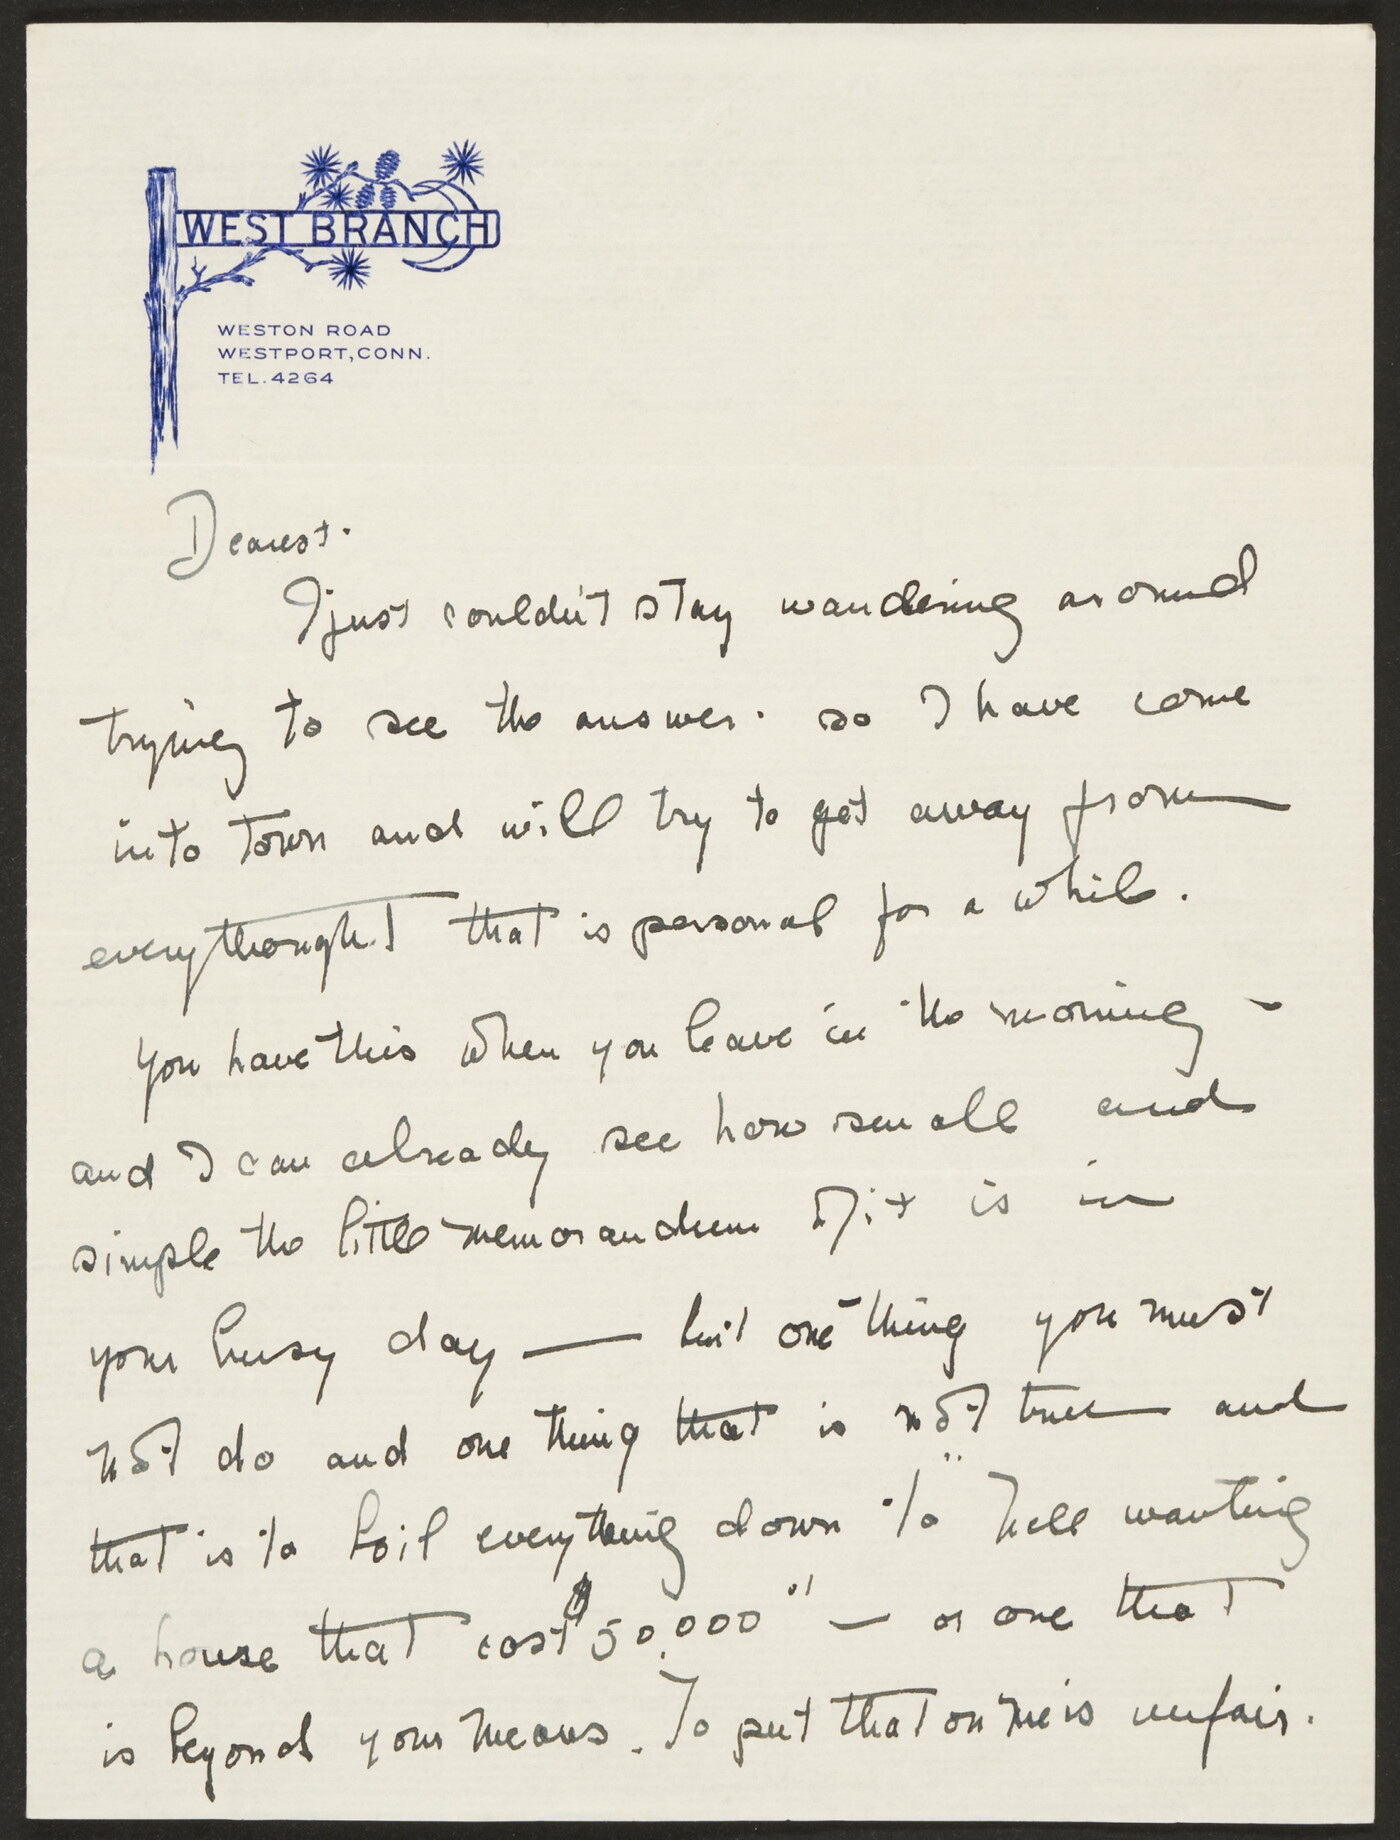 WEST BRANCH
WESTON ROAD
WESTPORT, CONN.
TEL. 4264
Dearest.
I just couldn't stay wandering around
trying to see the answer. so I have come
into town and will try to get away from
everythought that is personal for a while.
You have this when you leave in the morning -
and I can already see how small and
simple the little memorandum of it is in
your busy day — but one thing you must
not do and one thing that is not true and
that is to boil everything down to "Nell wanting
a house that cost $50,000" — or one that
is beyond your means. To put that on me is unfair.